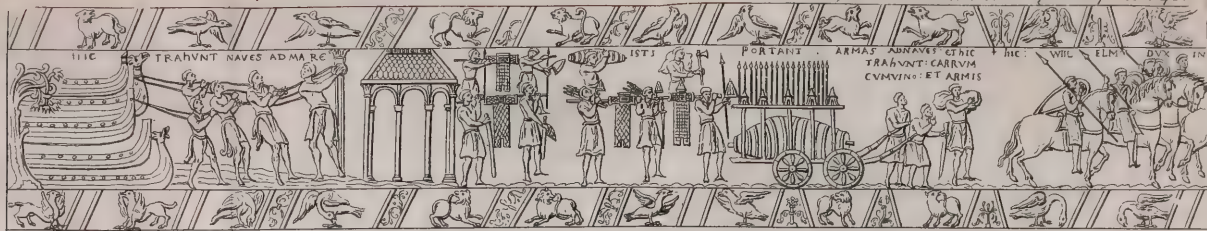 HIC TRAHUNT NAVES AD MARE
ISTI PORTANT : ARMAS ADNAVES ET HIC
TRAHUNT : CARRUM
CUMVINO : ET ARMIS
HIC : WILLELM DVX IN